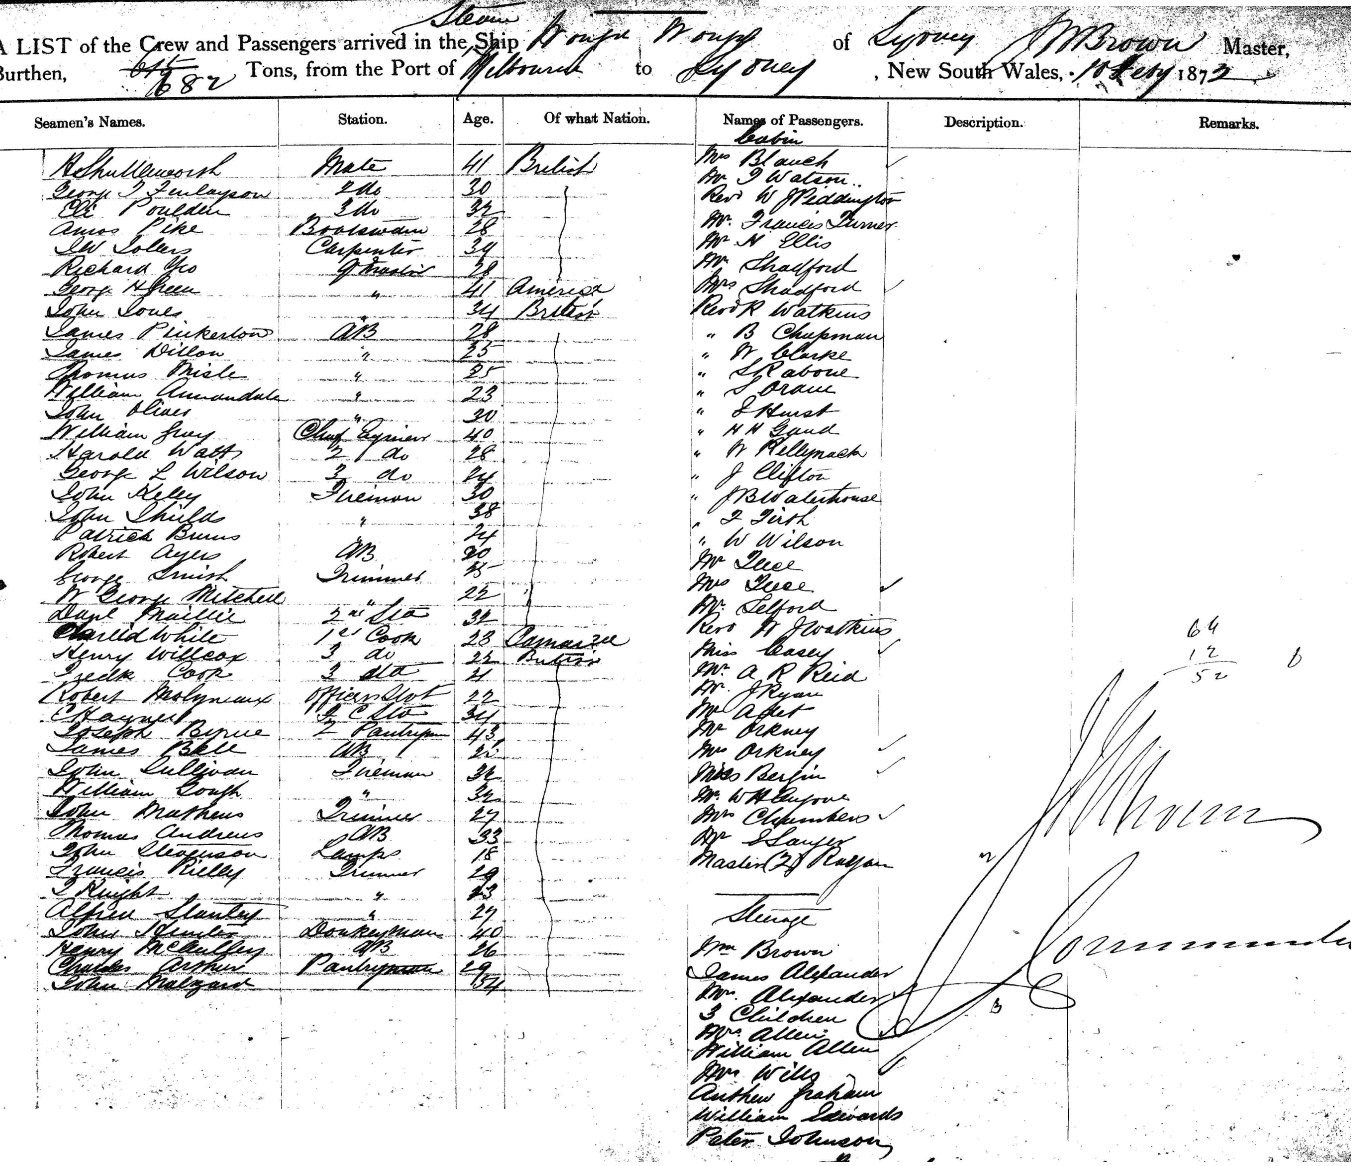 Steam
A LIST of the Crew and Passengers arrived in the Ship Wonga Wonga of Sydney J M Brown Master,
Burthen, 682 Tons, from the Port of Melbourne to Sydney, New South Wales, 10 Feby 1872
Seamen's Names. Station. Age. Of what Nation. Names of Passengers. Description. Remarks.
Cabin
Mate 41 British Mrs Blanch
George T Finlayson 2 do 30 Mr T Watson
Eli Poulden 3 do 32 Revd W J Piddington
Amos Pike Boatswain 28 Mr. Francis Turner
Carpenter 39 Mr H Ellis
Richard 28 Mr Shadford
George H Green " 41 America Mrs Shadford
John Jones " 34 British Revd R Watkins
James Pinkerton AB 28 " B Chapman
James Dillon " 25 " W Clarke
Thomas Misle " 25 " S Rabone
William Annandale " 23 " S Orame
John Oliver " 30 " J Hurst
William Gray Chief Engineer 40 " H H Gaud
Harold Watts 2 do 28 " W Kellynack
George L Wilson 3 do 24 " J Clifton
John Keley Fireman 30 " J B Waterhouse
John Shields " 38 " F Firth
Patrick Burns " 24 " W Wilson
Robert Ayers AB 20 Mr Tuce
George Smith Trimmer 25 Mrs Tuce
W George Mitchell " 22 Mr. Telford
Danl Maillie 2nd Std 32 Revd W J Watkins
Charles White 1st Cook 28 Miss Casey
Henry Willcox 3 do 22 British Mr. A R Reid
Fredk Cook 3 Std 21 Mr. J Ryan
Robert Molyneaux Officers Std 22 Mr Adet
C Haynes 2 C Std 34 Mr Orkney
Joseph Byrne 2 Pantryman 43 Mrs Orkney
James Ball AB 22 Miss Bergin
John Sullivan Fireman 32 Mr. W H
William Gough " 32 Mrs Chambers
John Mathews Trimmer 27 Mr E Sawyer
Thomas Andrews AB 33 Master (2)
John Stevenson Lamps 18
Francis Rielly Trimmer 29
T Knight " 23
Alfred Stanley " 27 Steerage
John Hunter Donkeyman 40
Henry McAulley AB 26 Wm Brown
Charles Arthur Pantryman 29 James Alexander
John Malzard 54 Mrs. Alexander
3 Children
Mrs Allen
William Allen
Mrs Wills
Anthew Graham
William Edwards
Peter Johnson
64
12
52
6
J M Brown
Commander
2
3